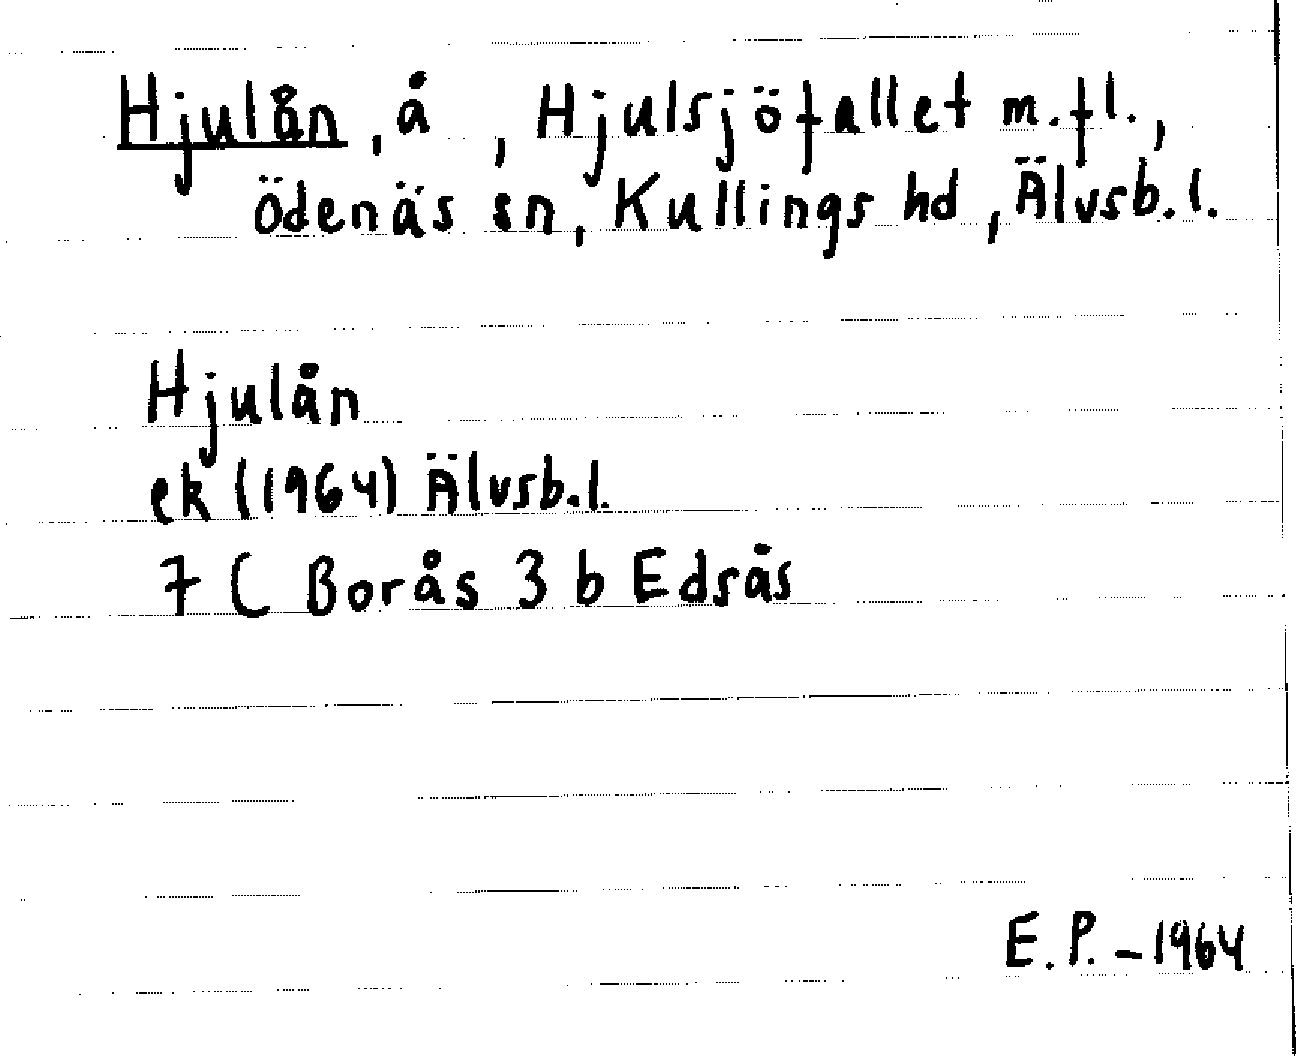 Hjulån, å, Hjulsjöfallet m.fl.,
Ödenäs sn, Kullings hd, Älvsb.l.
Hjulån
ek (1964) Älvsb.l.
7 C Borås 3 b Edsås
E.P. - 1964